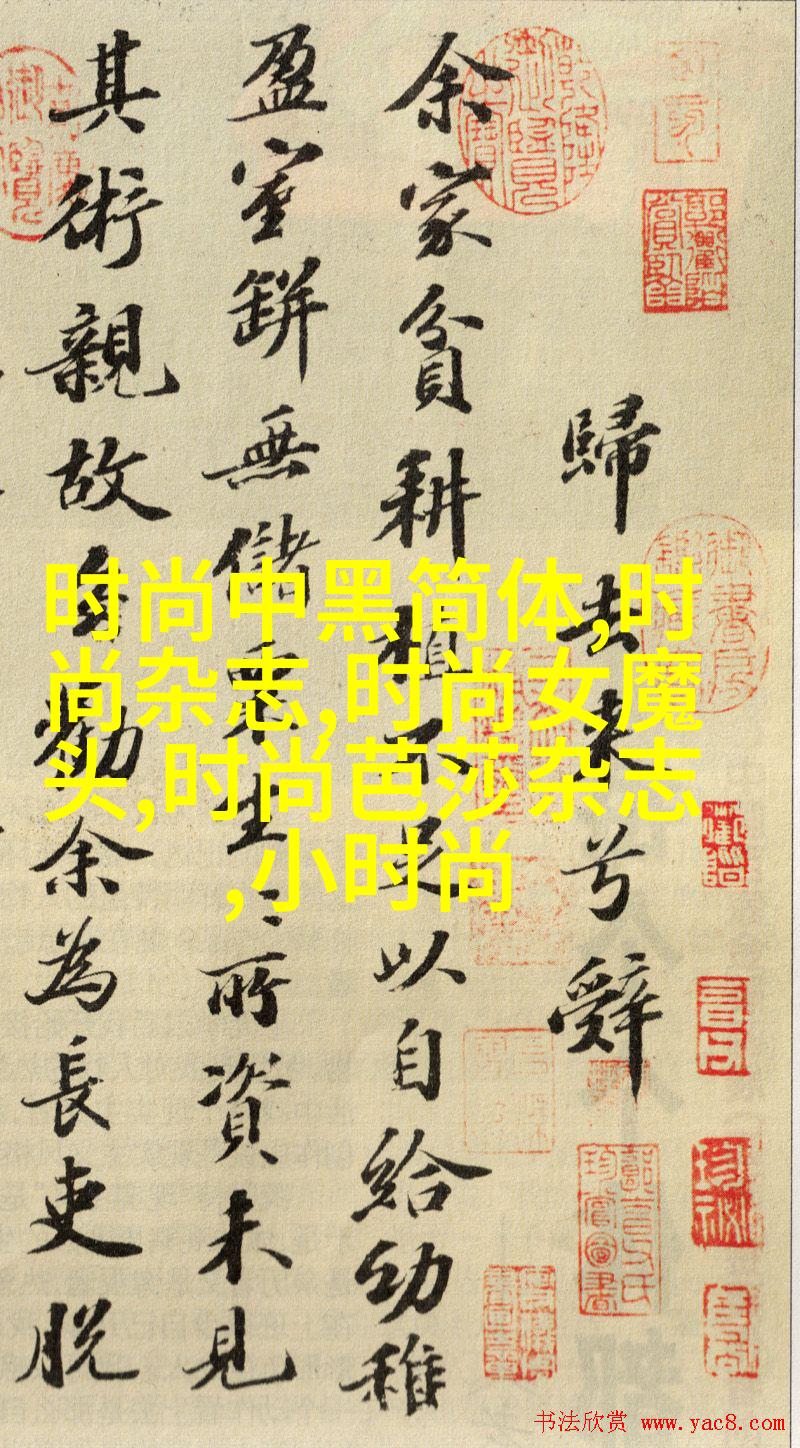 歸去来兮辭
余家貧耕植不足以自給幼稚
盈室缾無儲粟生〻所資未見
其術親故多勸余為長吏脱
时尚中黑简体,时
尚杂志,时尚女魔
头,时尚芭莎杂志
,小时尚
书法欣赏 www.yac8.com